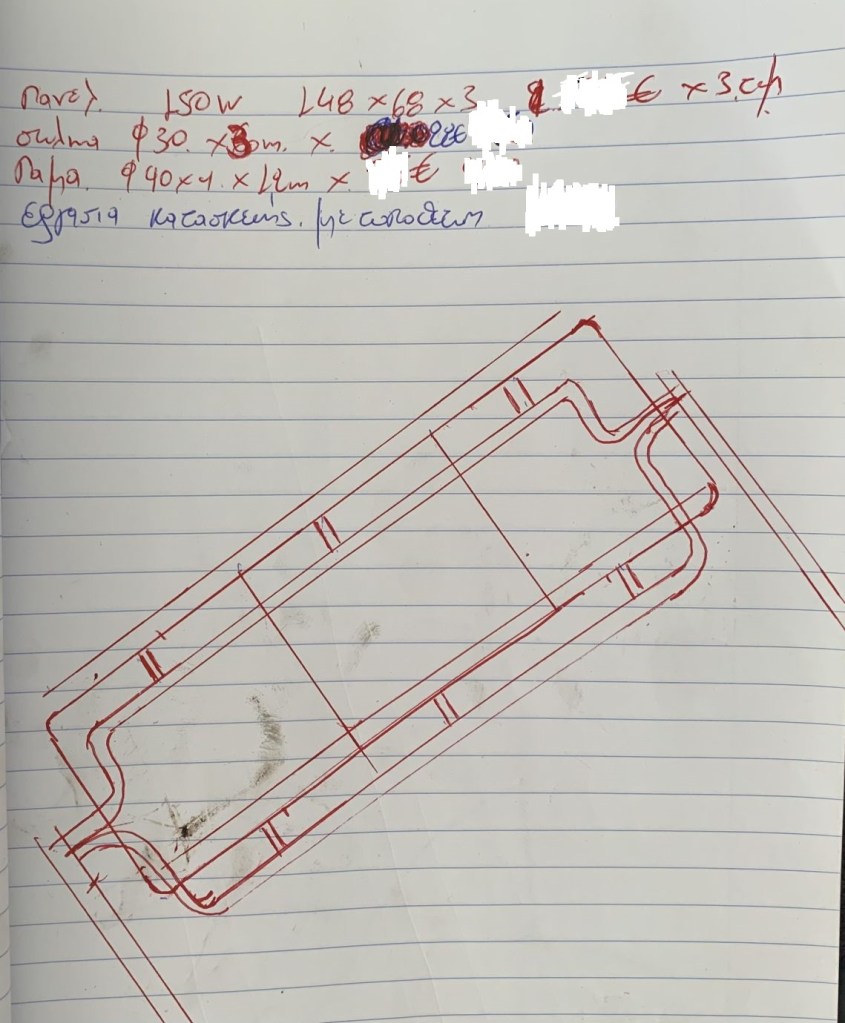 Πανελ. 150W 148 × 68 × 3 € × 3.
σωλήνα φ30. × m. ×
Λάμα. φ40×4. × 12m × €
εργασία κατασκευής. με τοποθέτηση